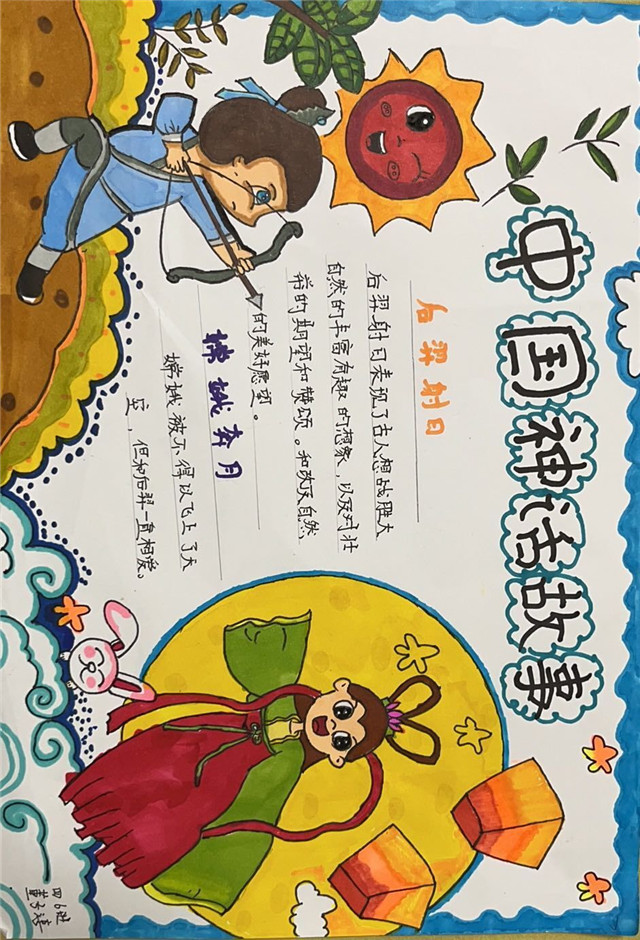 中国神话故事
后羿射日
后羿射日表现了古人想战胜大
自然的丰富有趣的想象，以及对壮
的期望和赞颂。和改
自然
的美好愿望。
嫦娥奔月
嫦娥被不得以飞上了天
空，但和后羿一直相爱。
四6班